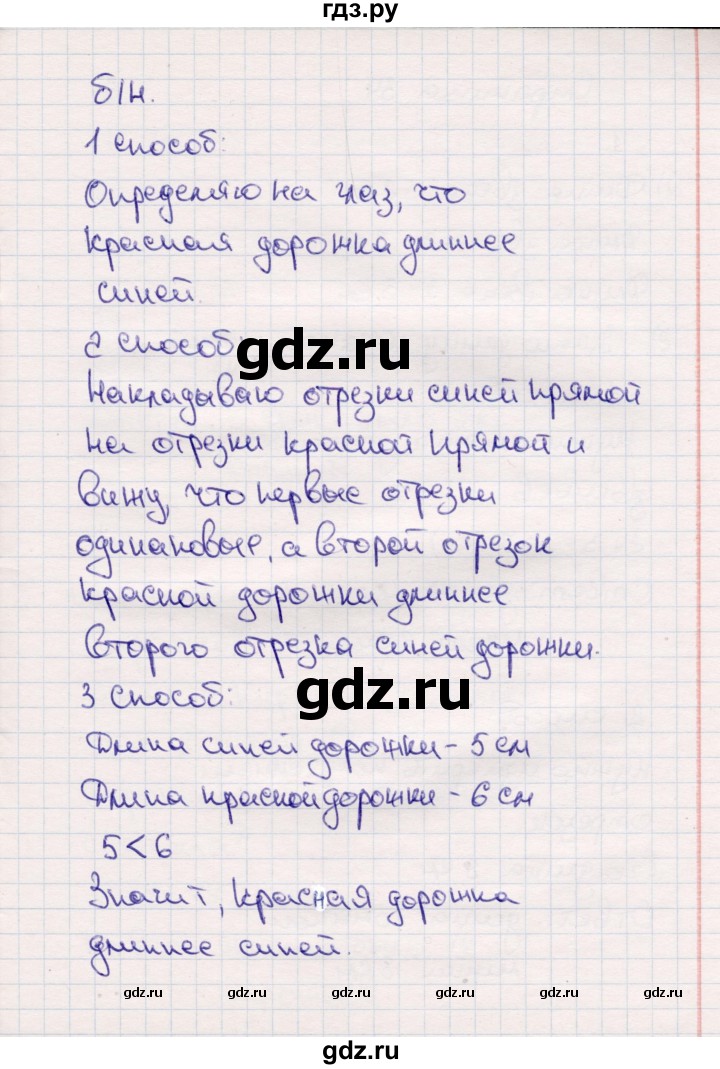 гдз.ру
б/н.
1 способ:
Определяю на глаз, что
красная дорожка длиннее
синей.
2 способ:
gdz.ru
Накладываю отрезки синей прямой
на отрезки красной прямой и
вижу, что первые отрезки
одинаковые, а второй отрезок
красной дорожки длиннее
второго отрезка синей дорожки.
3 способ:
gdz.ru
Длина синей дорожки - 5 см
Длина красной дорожки - 6 см
5 < 6
Значит, красная дорожка
длиннее синей.
gdz.ru gdz.ru gdz.ru gdz.ru gdz.ru gdz.ru
gdz.ru